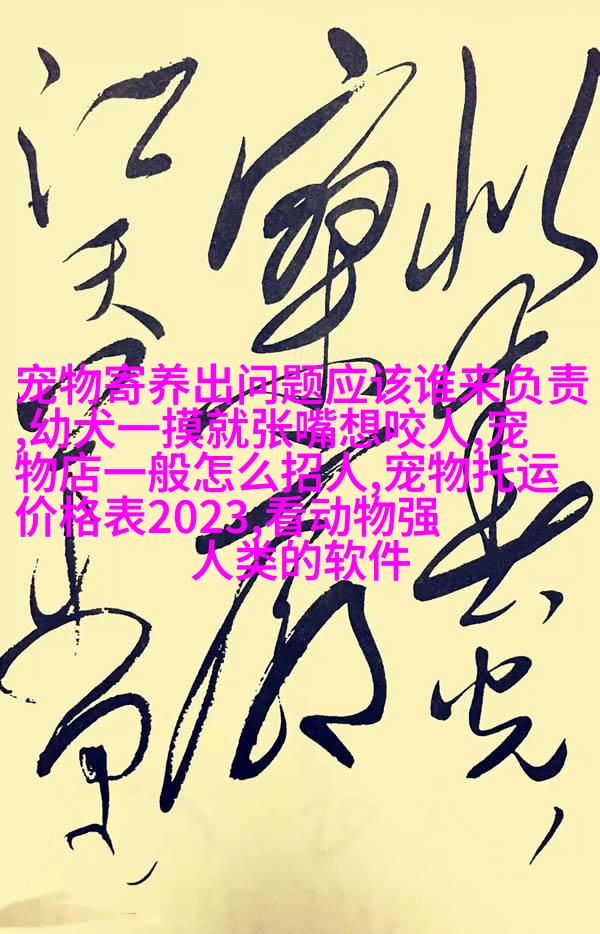 宠物寄养出问题应该谁来负责
,幼犬一摸就张嘴想咬人,宠
物店一般怎么招人,宠物托运
价格表2023,看动物强
人类的软件
似春光,
寥廓
江天